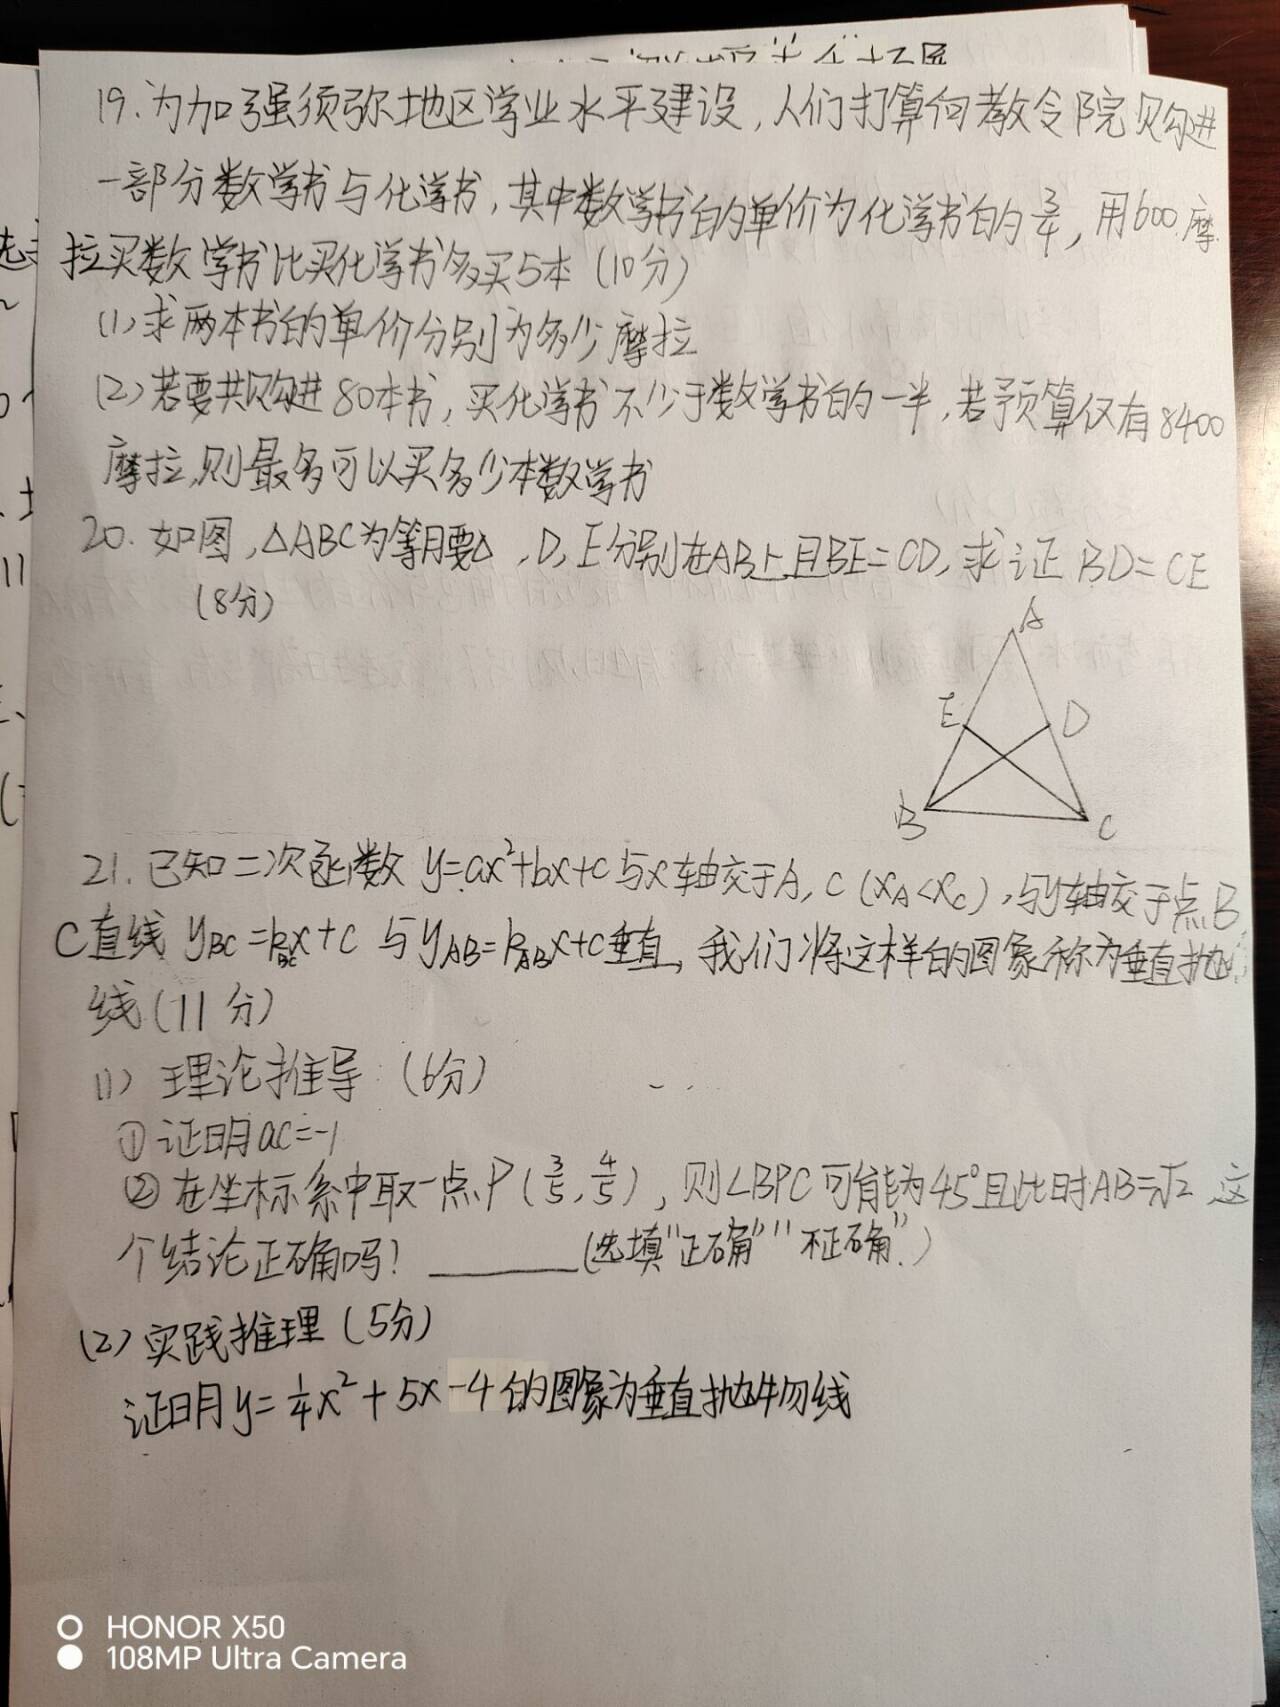 19.为加强须弥地区学业水平建设,人们打算向教令院购进
一部分数学书与化学书,其中数学书的单价为化学书的3/4,用600摩
拉买数学书比买化学书多买5本(10分)
(1)求两本书的单价分别为多少摩拉
(2)若要共购进80本书,买化学书不少于数学书的一半,若预算仅有8400
摩拉,则最多可以买多少本数学书
20.如图,△ABC为等腰△,D,E分别在AB上且BE=CD,求证BD=CE
(8分)
A
E D
B C
21.已知二次函数y=ax²+bx+c与x轴交于A,C(xA<xC),与y轴交于点B
C直线yBC=kBCx+c与yAB=kABx+c垂直,我们将这样的图象称为垂直抛
线(11分)
(1)理论推导(6分)
①证明ac=-1
②在坐标系中取一点P(3/5,4/5),则∠BPC可能为45°且此时AB=√2这
个结论正确吗?______(选填"正确""不正确")
(2)实践推理(5分)
证明y=1/4x²+5x-4的图象为垂直抛物线
HONOR X50
108MP Ultra Camera